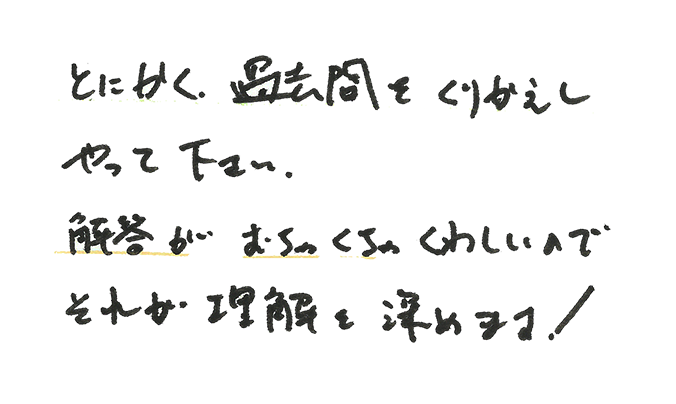 とにかく、過去問をくりかえし
やって下さい。
解答がむちゃくちゃくわしいので
それが理解を深めます!